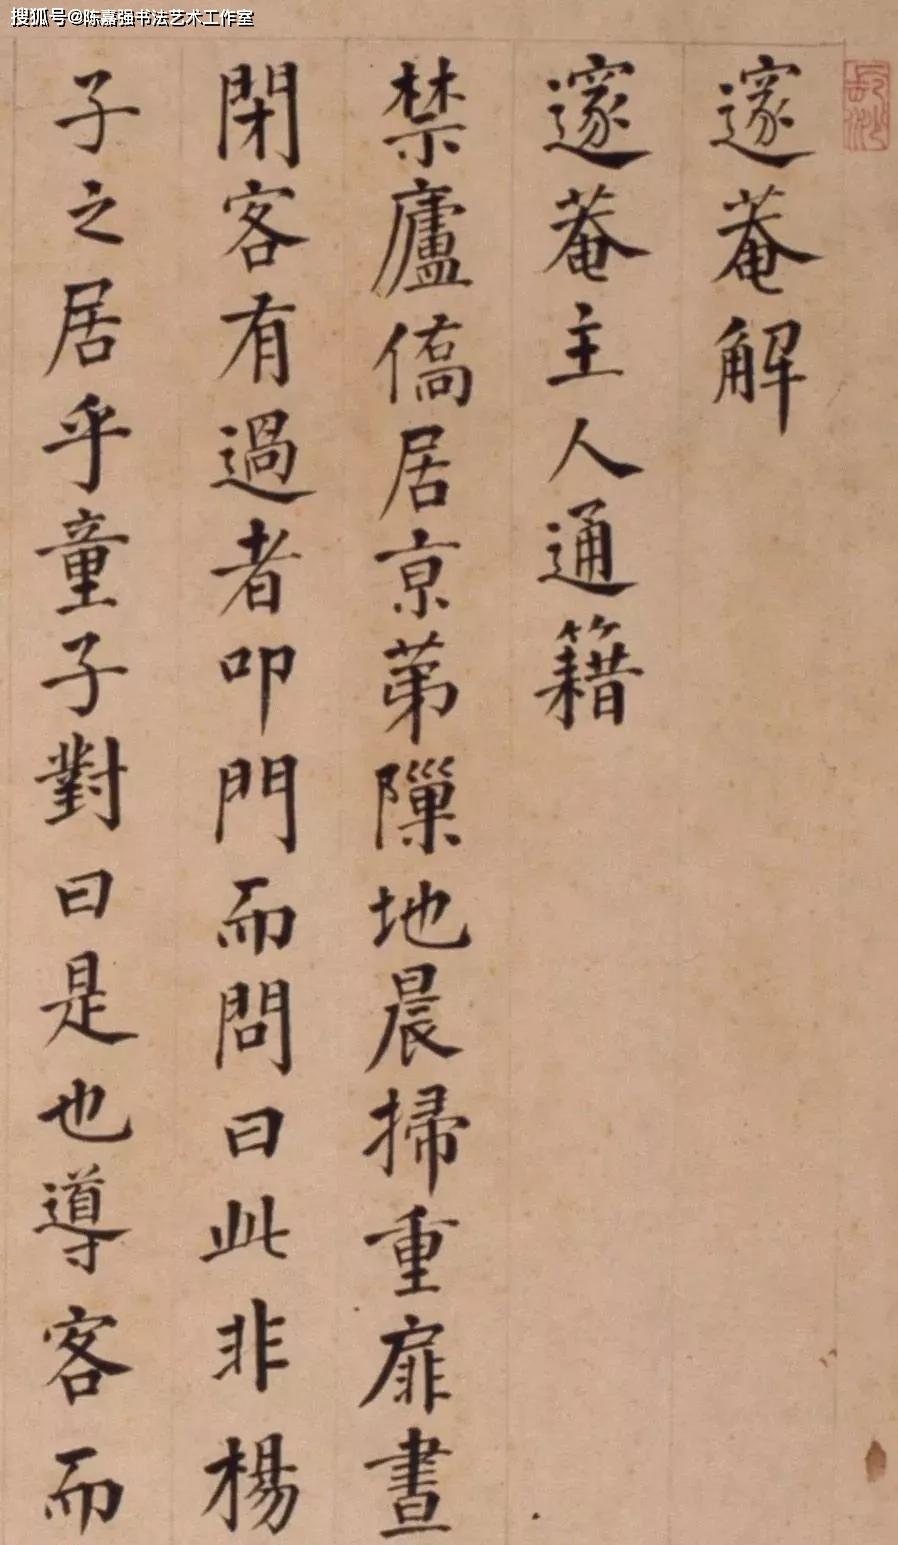 搜狐号@陈嘉强书法艺术工作室
邃菴解
邃菴主人通籍
禁廬僑居京苐隟地晨掃重扉晝
閉客有過者叩門而問曰此非楊
子之居乎童子對曰是也導客而